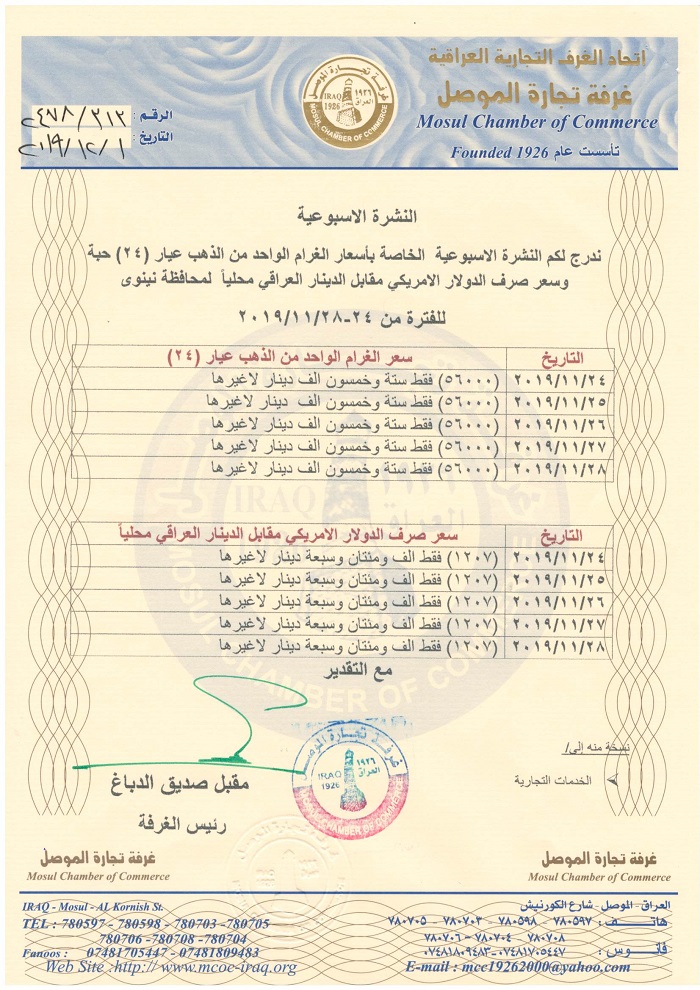 اتحاد الغرف التجارية العراقية
غرفة تجارة الموصل
Mosul Chamber of Commerce
Founded 1926 تأسست عام
غرفة تجارة الموصل
IRAQ ١٩٢٦
1926 العراق
MOSUL CHAMBER OF COMMERCE
الرقم : ٢٤٧٨/٣١٣
التاريخ : ٢٠١٩/١٢/١
النشرة الاسبوعية
ندرج لكم النشرة الاسبوعية الخاصة بأسعار الغرام الواحد من الذهب عيار (٢٤) حبة
وسعر صرف الدولار الامريكي مقابل الدينار العراقي محلياً لمحافظة نينوى
للفترة من ٢٤-٢٠١٩/١١/٢٨
التاريخ سعر الغرام الواحد من الذهب عيار (٢٤)
٢٠١٩/١١/٢٤ (٥٦٠٠٠) فقط ستة وخمسون الف دينار لاغيرها
٢٠١٩/١١/٢٥ (٥٦٠٠٠) فقط ستة وخمسون الف دينار لاغيرها
٢٠١٩/١١/٢٦ (٥٦٠٠٠) فقط ستة وخمسون الف دينار لاغيرها
٢٠١٩/١١/٢٧ (٥٦٠٠٠) فقط ستة وخمسون الف دينار لاغيرها
٢٠١٩/١١/٢٨ (٥٦٠٠٠) فقط ستة وخمسون الف دينار لاغيرها
التاريخ سعر صرف الدولار الامريكي مقابل الدينار العراقي محلياً
٢٠١٩/١١/٢٤ (١٢٠٧) فقط الف ومئتان وسبعة دينار لاغيرها
٢٠١٩/١١/٢٥ (١٢٠٧) فقط الف ومئتان وسبعة دينار لاغيرها
٢٠١٩/١١/٢٦ (١٢٠٧) فقط الف ومئتان وسبعة دينار لاغيرها
٢٠١٩/١١/٢٧ (١٢٠٧) فقط الف ومئتان وسبعة دينار لاغيرها
٢٠١٩/١١/٢٨ (١٢٠٧) فقط الف ومئتان وسبعة دينار لاغيرها
مع التقدير
غرفة تجارة الموصل
IRAQ ١٩٢٦
1926 العراق
MOSUL CHAMBER OF COMMERCE
نسخة منه إلى/
الخدمات التجارية
مقبل صديق الدباغ
رئيس الغرفة
غرفة تجارة الموصل
Mosul Chamber of Commerce
غرفة تجارة الموصل
Mosul Chamber of Commerce
العراق - الموصل - شارع الكورنيش
هاتف : ٧٨٠٥٩٧ - ٧٨٠٥٩٨ - ٧٨٠٧٠٣ - ٧٨٠٧٠٥
٧٨٠٧٠٨ - ٧٨٠٧٠٤ - ٧٨٠٧٠٦
فانوس : ٠٧٤٨١٧٠٥٤٤٧-٠٧٤٨١٨٠٩٤٨٣
E-mail : mcc19262000@yahoo.com
IRAQ - Mosul - AL Kornish St.
TEL : 780597 - 780598 - 780703 -780705
780706 -780708 -780704
Fanoos : 07481705447 - 07481809483
Web Site :http:// www.mcoc-iraq.org